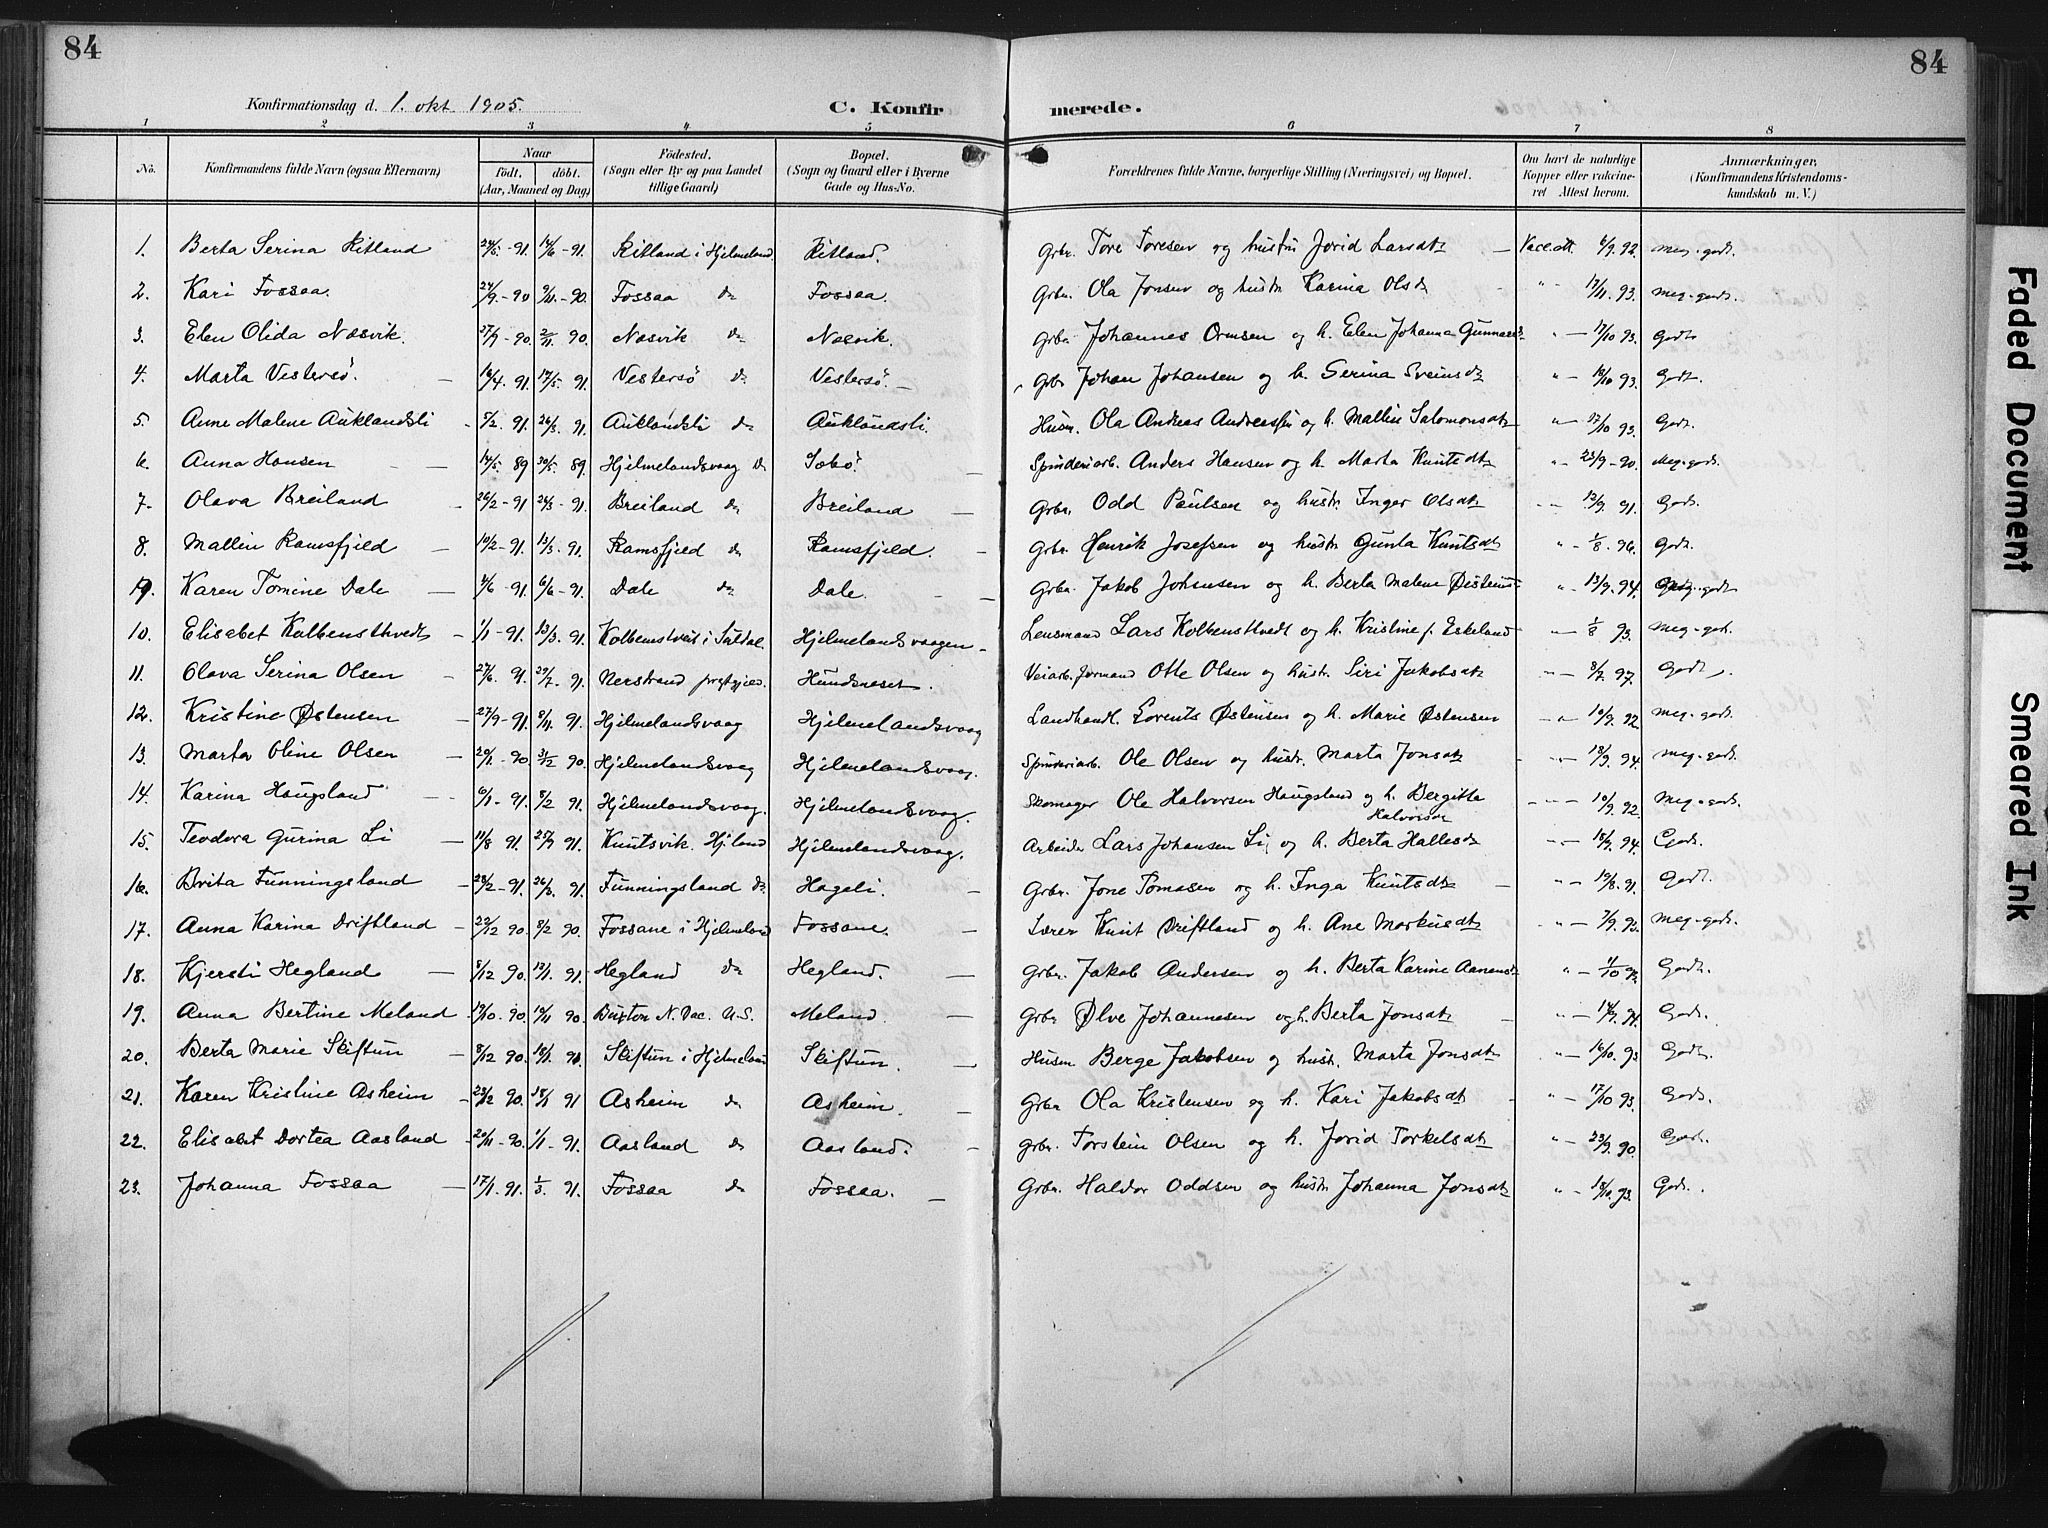 84
84
Konfirmationsdag d. 1. okt 1905.
C. Konfir
merede.
1 2 3 4 5 6 7 8
No.
Konfirmandens fulde Navn (ogsaa Efternavn)
Naar
født. døbt.
(Aar, Maaned og Dag)
Fødested.
(Sogn eller By og paa Landet
tillige Gaard)
Bopæl.
(Sogn og Gaard eller i Byerne
Gade og Hus-No.
Forældrenes fulde Navne, borgerlige Stilling (Næringsvei) og Bopæl.
Om havt de naturlige
Kopper eller vakcine-
ret Attest herom.
Anmærkninger.
(Konfirmandens Kristendoms-
kundskab m. V.)
1. Berta Serina Ritland 24/5-91. 14/6-91. Ritland i Hjelmeland. Ritland. Grbr. Tore Toresen og hustru Jorid Larsdtr — Vacc.att. 6/9.92. Meg. godt.
2. Kari Fossaa. 24/9-90 9/11-90. Fossaa do Fossaa. Grbr. Ola Jonsen og hustr Karina Olsdr " 17/11.93. Meg-godt.
3. Elen Olida Næsvik. 27/9-90. 2/11 90. Næsvik do Næsvik. Grbr. Johannes Ormsen og h. Elen Johanna Gunnarsd. " — 17/10 93. Godt
4. Marta Vestersø. — 16/4. 91. 17/5 91. Vestersø do Vestersø. — Grbr Johan Johansen og h. Serina Sveinsdtr " — 18/10 93. Godt.
5. Anne Malene Auklandsli 5/2. 91. 26/3. 91. Auklandsli do Auklandsli. Husm. Ola Andreas Andreassen og h. Mallin Salomonsdtr " 17/10 93. Godt.
6. Anna Hansen — 14/5. 89 30/5. 89. Hjelmelandsvaag do Søbø. — Spinderiarb. Anders Hansen og h. Marta Knutsdtr " 23/9-90. Meg-godt.
7. Olava Breiland 26/2-91 24/3-91. Breiland do Breiland — Grbr. Odd Paulsen og hustr. Inger Olsdtr " 12/9. 91. Godt.
8. Mallin Ramsfjeld — 10/2-91. 13/3. 91. Ramsfjeld do Ramsfjeld. — Grbr Henrik Josefsen og hustr Gunla Knutsdtr " — 1/8. 96. Godt.
9. Karen Tomine Dale — 4/6-91. 6/6-91. Dale do Dale. Grbr. Jakob Johnsen og h. Berta Malene Østeinsd " — 13/9.94. Meg-godt
10. Elisabet Kolbensthvedt — 1/1-91. 13/3. 91. Kolbenstveit i Suldal. Hjelmelandsvaagen — Lensmand Lars Kolbensthvedt og h. Kristine f. Eskeland " — 1/8 93. Meg-godt.
11. Olava Serina Olsen — 27/6. 91. 29/7. 91. Nerstrand prstgjeld. Hundsneset. Veiarb.formand Otte Olsen og hustr. Siri Jakobsdtr " 8/7. 97. Godt.
12. Kristine Østensen — 27/9-91. 8/11 91. Hjelmelandsvaag Hjelmelandsvaag Landhandl. Lorents Østensen og h. Marie Østensen " 10/9. 92. Meg-godt.
13. Marta Oline Olsen — 20/11-90. 31/12 90. Hjelmelandsvaag Hjelmelandsvaag. Spinderiarb. Ole Olsen og hustr. Marta Jonsdtr " 18/9. 94. Meg-godt.
14. Karina Haugsland — 6/1-91. 8/2 91. Hjelmelandsvaag. Hjelmelandsvaag. Skomager Ole Halvorsen Haugsland og h. Bergitte
Halvorsdr — 10/9. 92. Meg-godt.
15. Teodora Gurina Li — 11/8 91. 25/9 91. Knutsvik. Hjland Hjelmelandsvaag. Arbeider Lars Johansen Li, og h. Berta Hallesdr " — 18/9. 94. Godt.
16. Brita Funningsland — 28/2-91. 26/3. 91. Funningsland do Hageli. — Grbr. Jone Tomasen og h. Inga Knutsdtr — " — 19/8. 91. Godt.
17. Anna Karina Driftland — 22/12 90. 8/2 90. Fossane i Hjelmeland Fossane. — Lærer Knut Driftland og h. Ane Markusdtr " — 7/9. 93. Meg-godt.
18. Kjersti Hegland — 8/12 90. 12/1. 91. Hegland do Hegland. — Grbr. Jakob Andersen og h. Berta Karine Aanensdr " — Godt.
19. Anna Bertine Meland — 19/10. 90. 19/11 90. Buxton N. Dac. U.S. Meland. — Grbr Ølve Johannesen og h. Berta Jonsdtr — " — 14/9. 91. Godt.
20. Berta Marie Skiftun — 8/12 90. Skiftun i Hjelmeland Skiftun. — Husm Berge Jakobsen og hust. Marta Jonsdtr " — 16/10. 93 Godt.
21. Karen Kristine Asheim — 23/12 90. 18/1 91 Asheim do Asheim. — Grbr Ola Kristensen og h. Kari Jakobsdtr " — 17/10 93. Godt.
22. Elisabet Dortea Aasland — 20/11-90. 1/1-91. Aasland do Aasland. — Grbr. Torstein Olsen og h. Jorid Torkelsdtr " — 23/9. 90. Godt.
23. Johanna Fossaa — 17/1. 91. 1/3. 91. Fossaa do Fossaa. — Grbr. Haldor Oddsen og hustr Johanna Jonsdtr " — 18/10. 93. Godt.
Faded Document
Smeared Ink